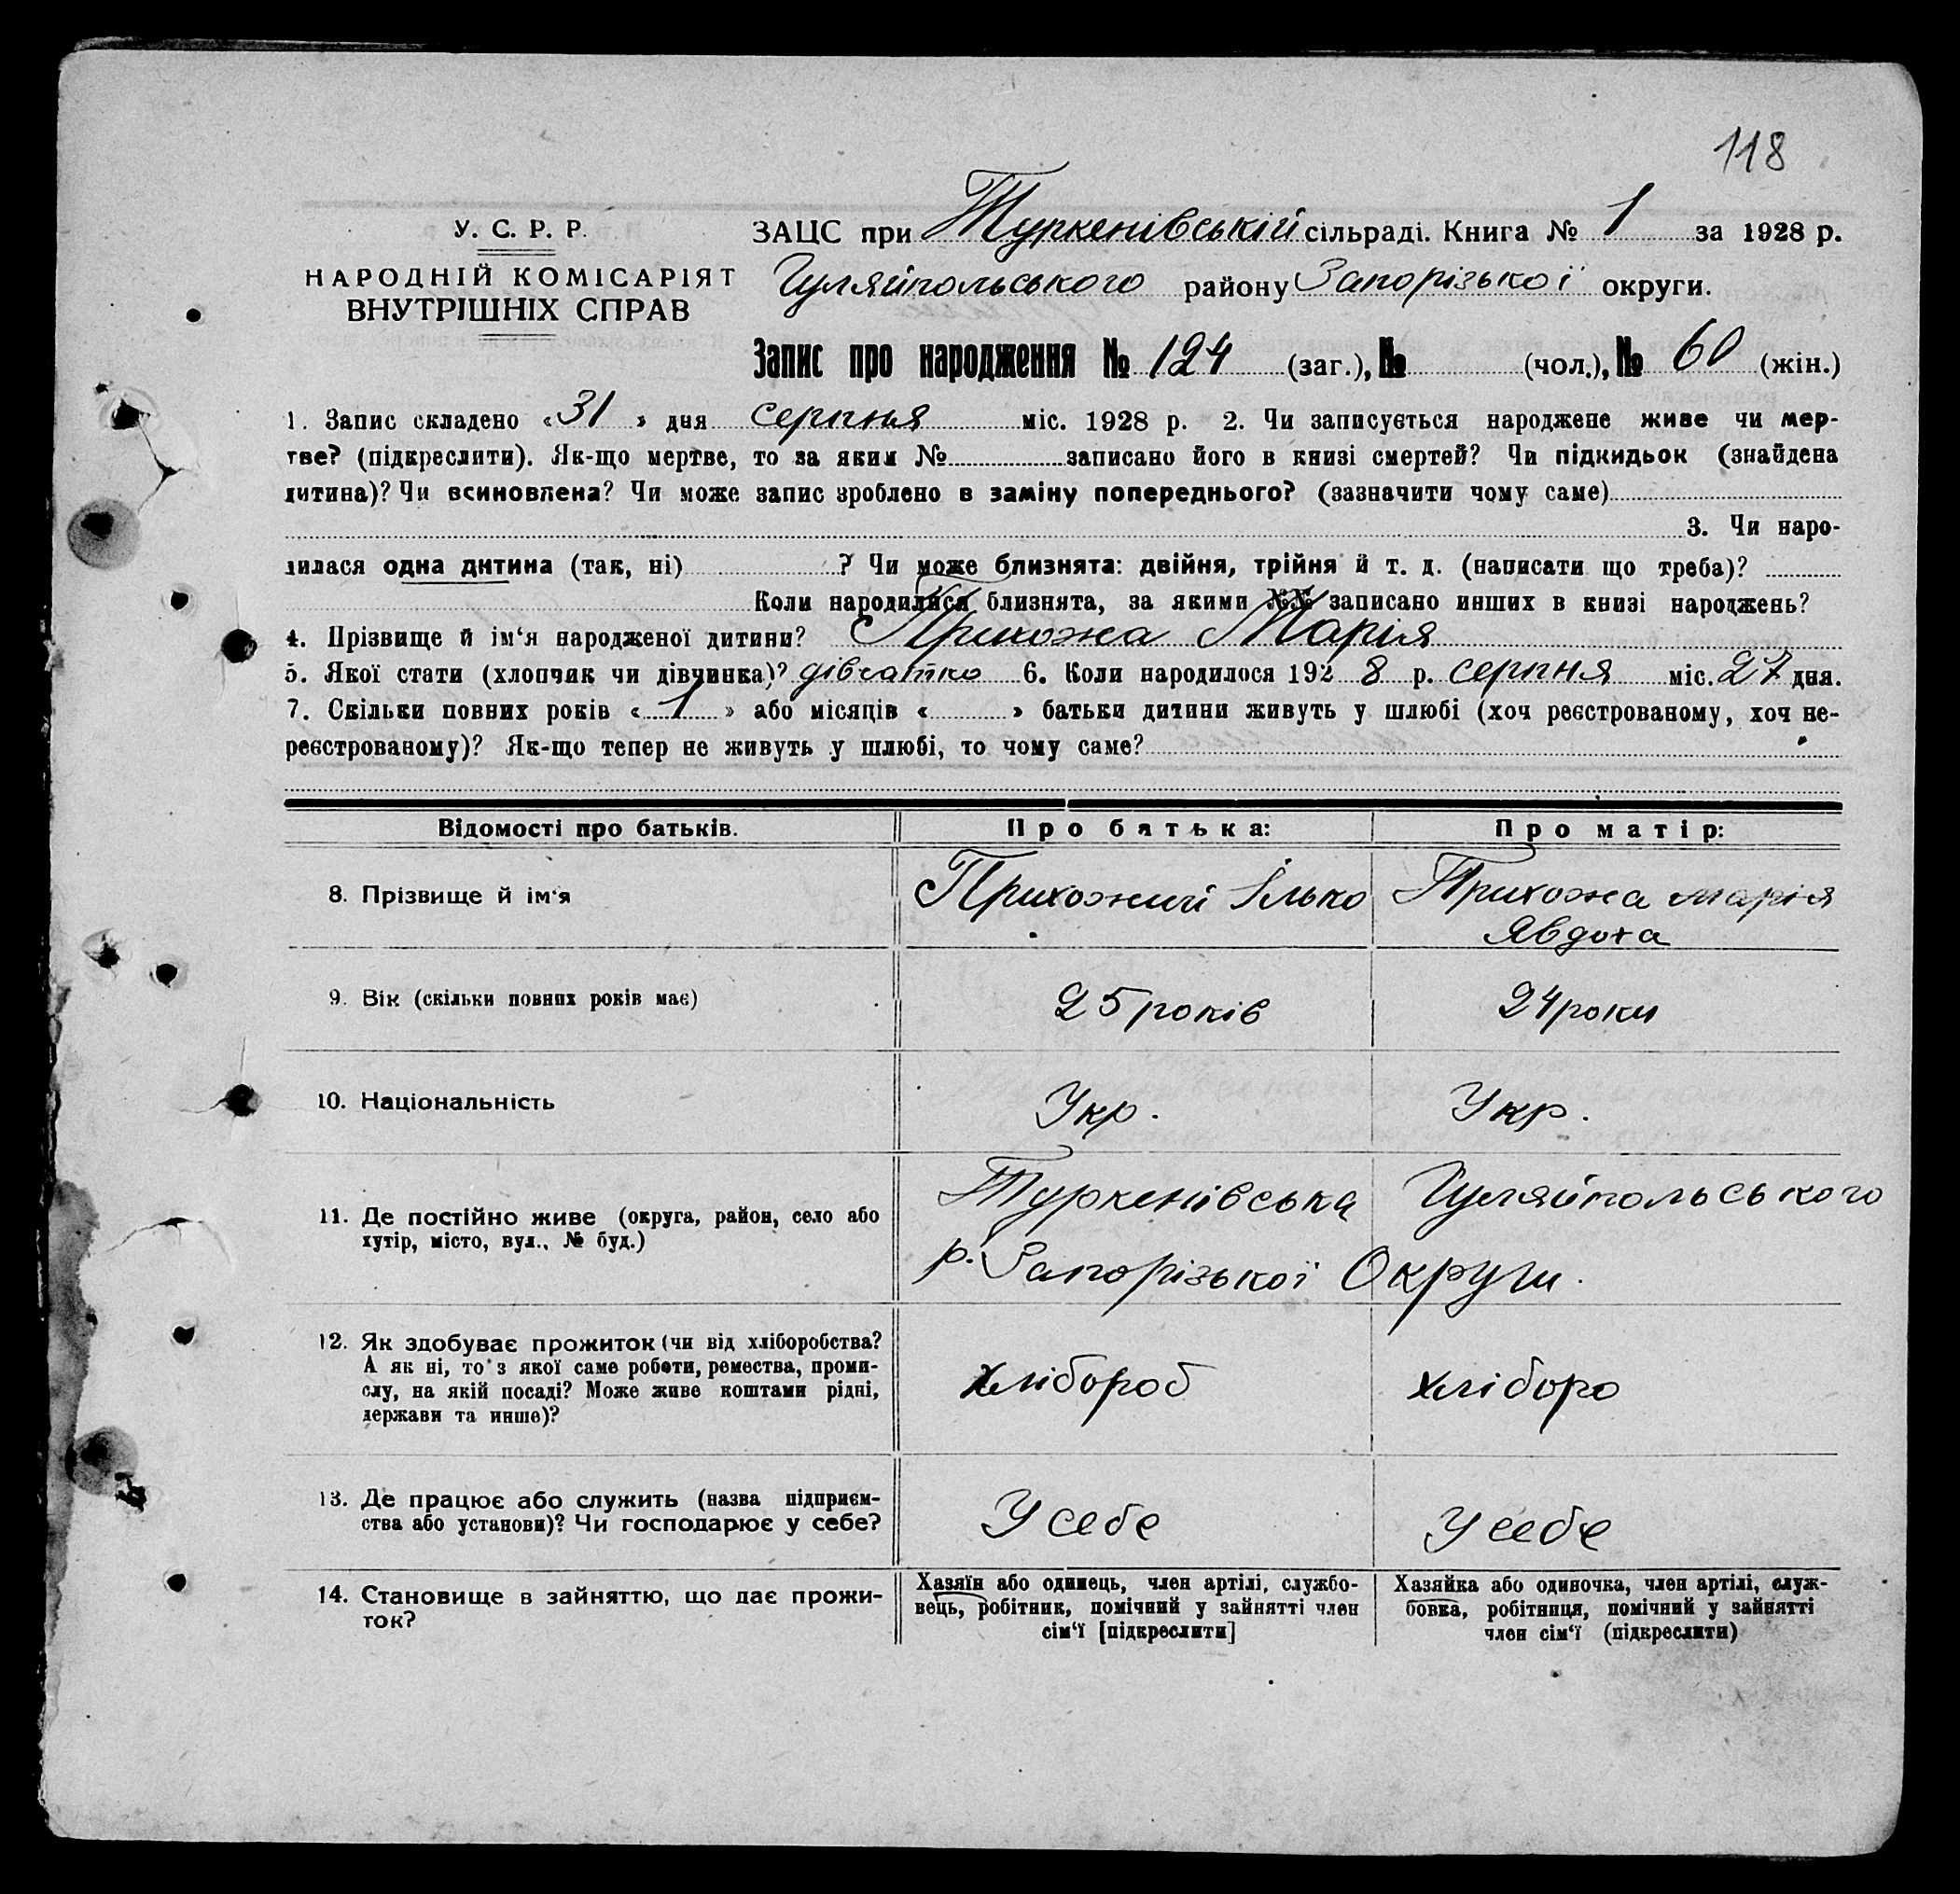 118
У. С. Р. Р.
НАРОДНІЙ КОМІСАРІЯТ
ВНУТРІШНІХ СПРАВ
ЗАЦС при Туркенівській сільраді. Книга № 1 за 1928 р.
Гуляйпольського району Запорізької округи.
Запис про народження № 124 (заг.), № (чол.), № 60 (жін.)
1. Запис складено «31» дня серпня міс. 1928 р. 2. Чи записується народжене живе чи мер-
тве? (підкреслити). Як-що мертве, то за яким № записано його в книзі смертей? Чи підкидьок (знайдена
дитина)? Чи всиновлена? Чи може запис зроблено в заміну попереднього? (зазначити чому саме)
3. Чи наро-
дилася одна дитина (так, ні) ? Чи може близнята: двійня, трійня й т. д. (написати що треба)?
Коли народилися близнята, за якими №№ записано инших в книзі народжень?
4. Прізвище й ім‘я народженої дитини? Прихожа Марія
5. Якої стати (хлопчик чи дівчинка)? дівчатко 6. Коли народилося 1928 р. серпня міс. 27 дня.
7. Скільки повних років «1» або місяців « » батьки дитини живуть у шлюбі (хоч реєстрованому, хоч не-
реєстрованому)? Як-що тепер не живуть у шлюбі, то чому саме?
Відомості про батьків. Про батька: Про матір:
8. Прізвище й ім‘я Прихожий Ілько Прихожа Марія
Явдоха
9. Вік (скільки повних років має) 25 років 24 роки
10. Національність Укр. Укр.
11. Де постійно живе (округа, район, село або
хутір, місто, вул., № буд.) Туркенівська Гуляйпольського
р. Запорізької Округи.
12. Як здобуває прожиток (чи від хліборобства?
А як ні, то з якої саме роботи, ремества, проми-
слу, на якій посаді? Може живе коштами рідні,
держави та инше)? хлібороб хліборо
13. Де працює або служить (назва підприєм-
ства або установи)? Чи господарює у себе? У себе У себе
14. Становище в зайняттю, що дає прожи-
ток?
Хазяїн або одинець, член артілі, службо-
вець, робітник, помічний у зайнятті член
сім‘ї [підкреслити]
Хазяйка або одиночка, член артілі, служ-
бовка, робітниця, помічний у зайнятті
член сім‘ї (підкреслити)